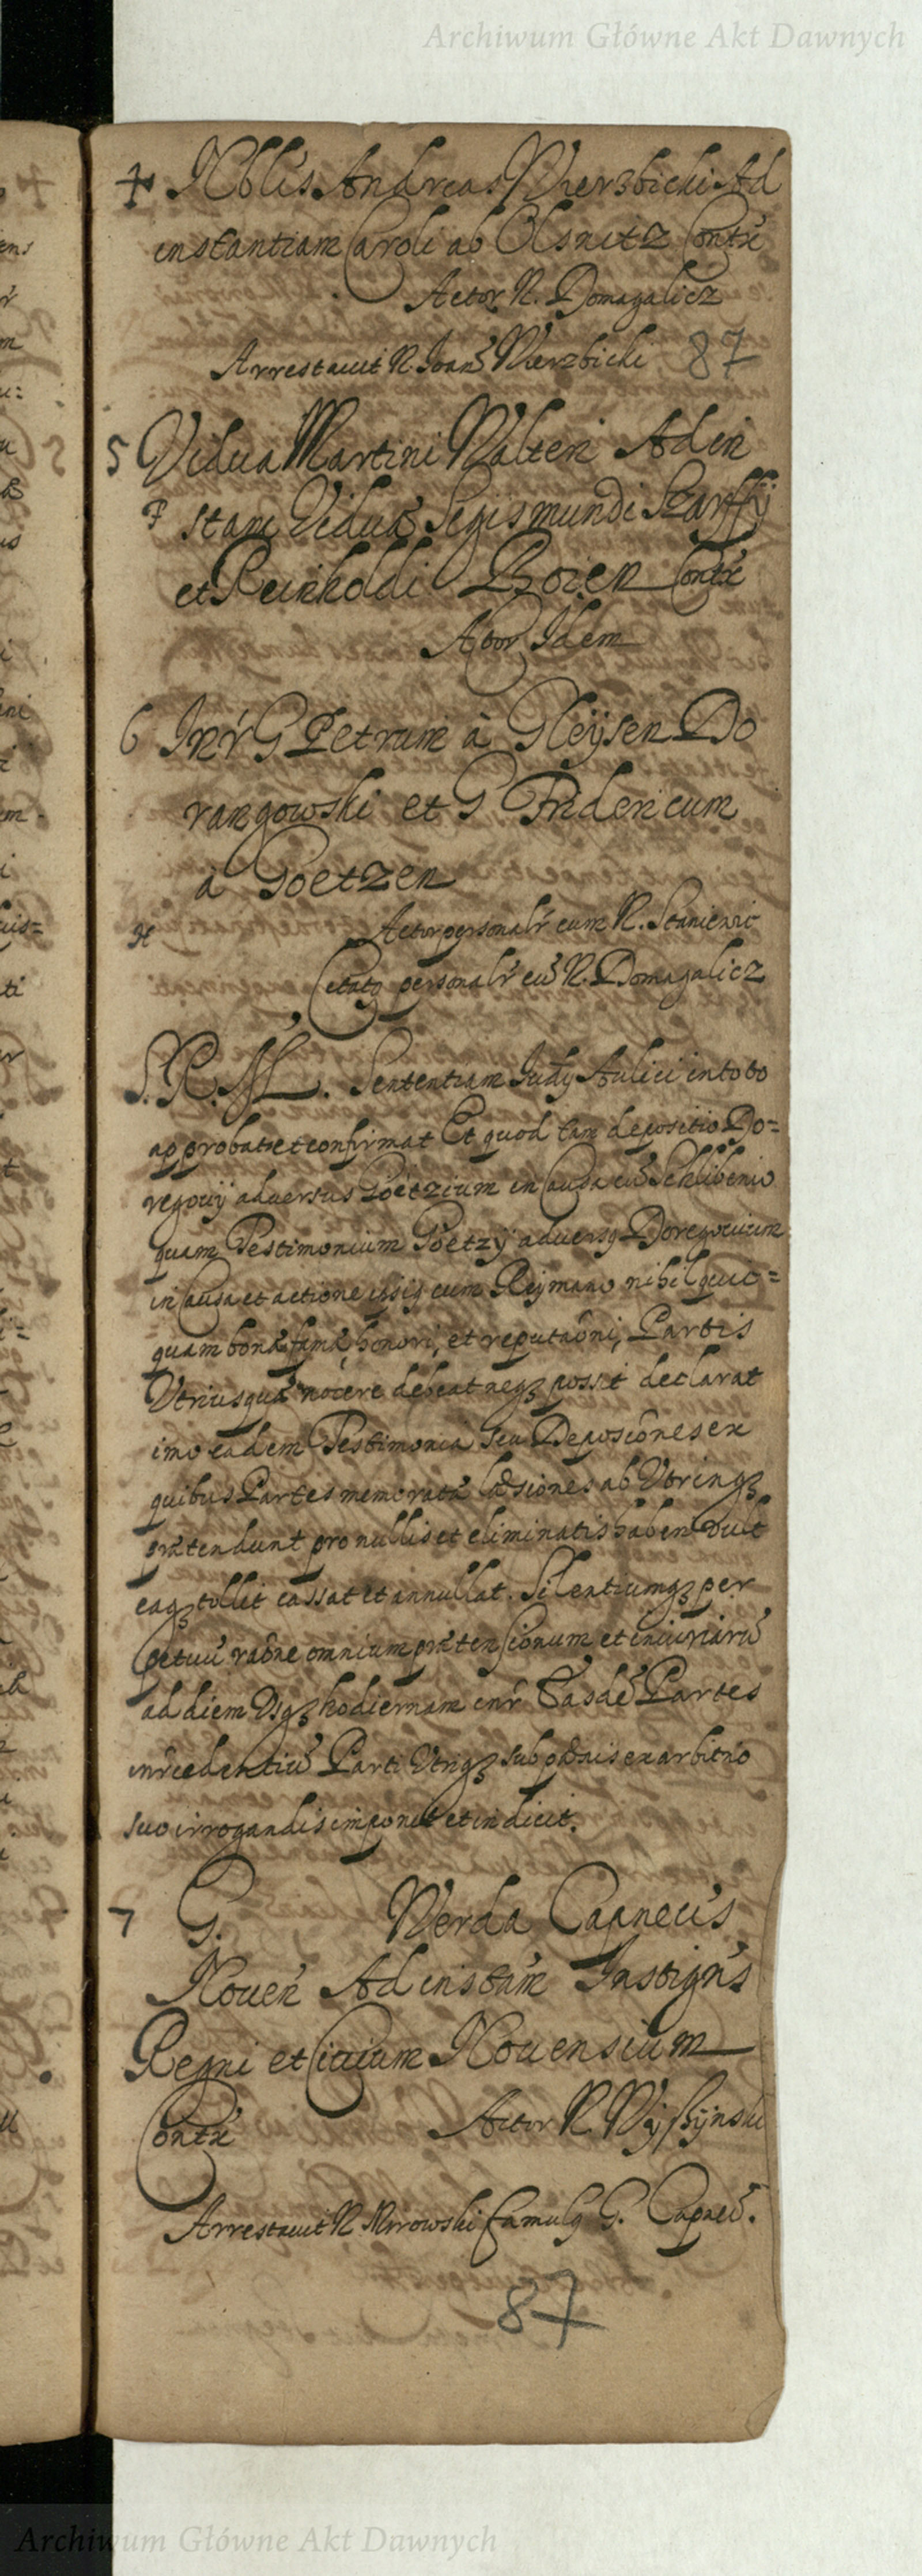 Archiwum Główne Akt Dawnych
4 Nblis Andreas Wierzbicki Ad
instantiam Caroli ab Olsnitz Contr
Actor N. Domagalicz
Arrestavit N. Joan Wierzbicki 87
5 Vidua Martini Walteri Ad in
stam Viduæ Segismundi Szarffÿ
et Reinholdi Boien Contr
Actor Idem
6 Intr G Petrum à Gleÿsen Do
rangowski et G Fridericum
à Goetzen
Actor personalr cum N. Staniewic
Citatq personalr cu N. Domagalicz
S. R. M. Sententiam Judÿ Aulici in toto
approbat et confirmat Et quod tam depositio Do=
regovij adversus Goetzium in Causa cu Schlibenio
quam Testimonium Goetzÿ adversq Doregovium
in Causa et actione ipsiq cum Reÿmano nihil quic=
quam bonæ famæ, honori, et reputaoni, Partis
Utriusquæ nocere debeat neqz possit declarat
imo eadem Testimonia seu Deposiones ex
quibus Partes memoratæ læsiones ab Utrinqz
prætendunt pro nullis et eliminatis haberi Vult
eaqz tollit cassat et annullat. Silentiumqz per
petuu raone omnium prætensionum et iniuriaru
ad diem Usqz hodiernam intr Easde Partes
intrcedentiu Parti Utriqz sub pœnis ex arbitrio
suo irrogandis imponit et indicit.
7 G. Werda Capneus
Noven Ad instam Instigris
Regni et Civium Novensium
Contr Actor N Wÿssÿnski
Arrestavit N Mirowski famulq G. Capnei.
87
Archiwum Główne Akt Dawnych